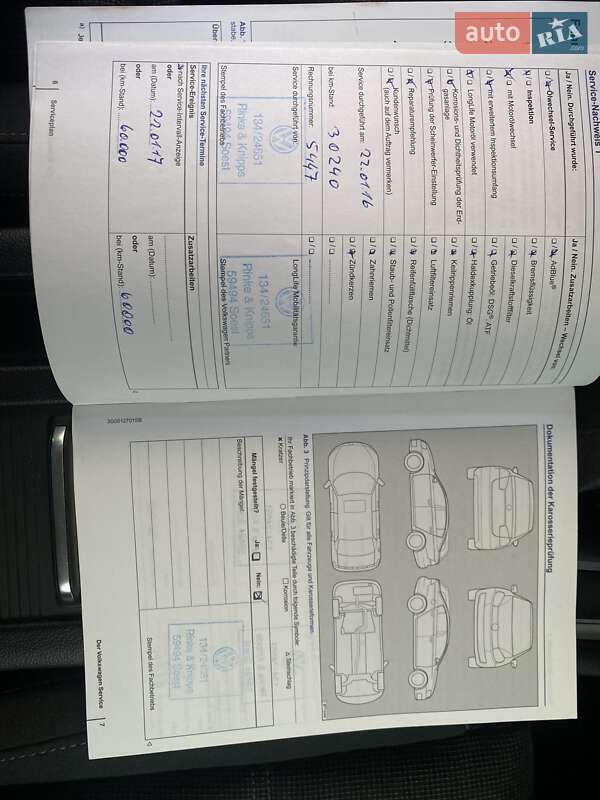 auto RIA.com
Service-Nachweis 1
Ja / Nein: Durchgeführt wurde:
Ölwechsel-Service
Inspektion
mit Motorölwechsel
mit erweitertem Inspektionsumfang
LongLife Motoröl verwendet
Korrosions- und Dichtheitsprüfung der Erd-
gasanlage
Prüfung der Scheinwerfer-Einstellung
Reparaturempfehlung
Kundenwunsch
(auch auf dem Auftrag vermerken)
Service durchgeführt am: 22.01.16
bei km-Stand: 30240
Rechnungsnummer: 5447
Service durchgeführt von:
134/24651
Rinke & Knipps
59494 Soest
Stempel des Fachbetriebs
Ja / Nein: Zusatzarbeiten – Wechsel von
AdBlue®
Bremsflüssigkeit
Dieselkraftstofffilter
Getriebeöl: DSG®, ATF
Haldexkupplung: Öl
Keilrippenriemen
Luftfiltereinsatz
Reifenfüllflasche (Dichtmittel)
Staub- und Pollenfiltereinsatz
Zahnriemen
Zündkerzen
LongLife Mobilitätsgarantie
134/24651
Rinke & Knipps
59494 Soest
Stempel des Volkswagen Partners
Ihre nächsten Service-Termine
Service-Ereignis
nach Service-Intervall-Anzeige
oder
am (Datum): 22.01.17
oder
bei (km-Stand): 60.000
Zusatzarbeiten
am (Datum):
oder
bei (km-Stand): 60000
6 Serviceplan
Abb.
stabe.
Über
a) Je
Dokumentation der Karosserieprüfung
Abb. 3 Prinzipdarstellung: Gilt für alle Fahrzeuge und Karosserieformen.
Ihr Fachbetrieb markiert in Abb. 3 beschädigte Teile durch folgende Symbole:
× Kratzer
○ Beule/Delle
□ Korrosion
△ Steinschlag
Mängel festgestellt? Ja: Nein:
Beschreibung der Mängel:
134/24651
Rinke & Knipps
59494 Soest
Stempel des Fachbetriebs
3G0012701SB
Der Volkswagen Service 7